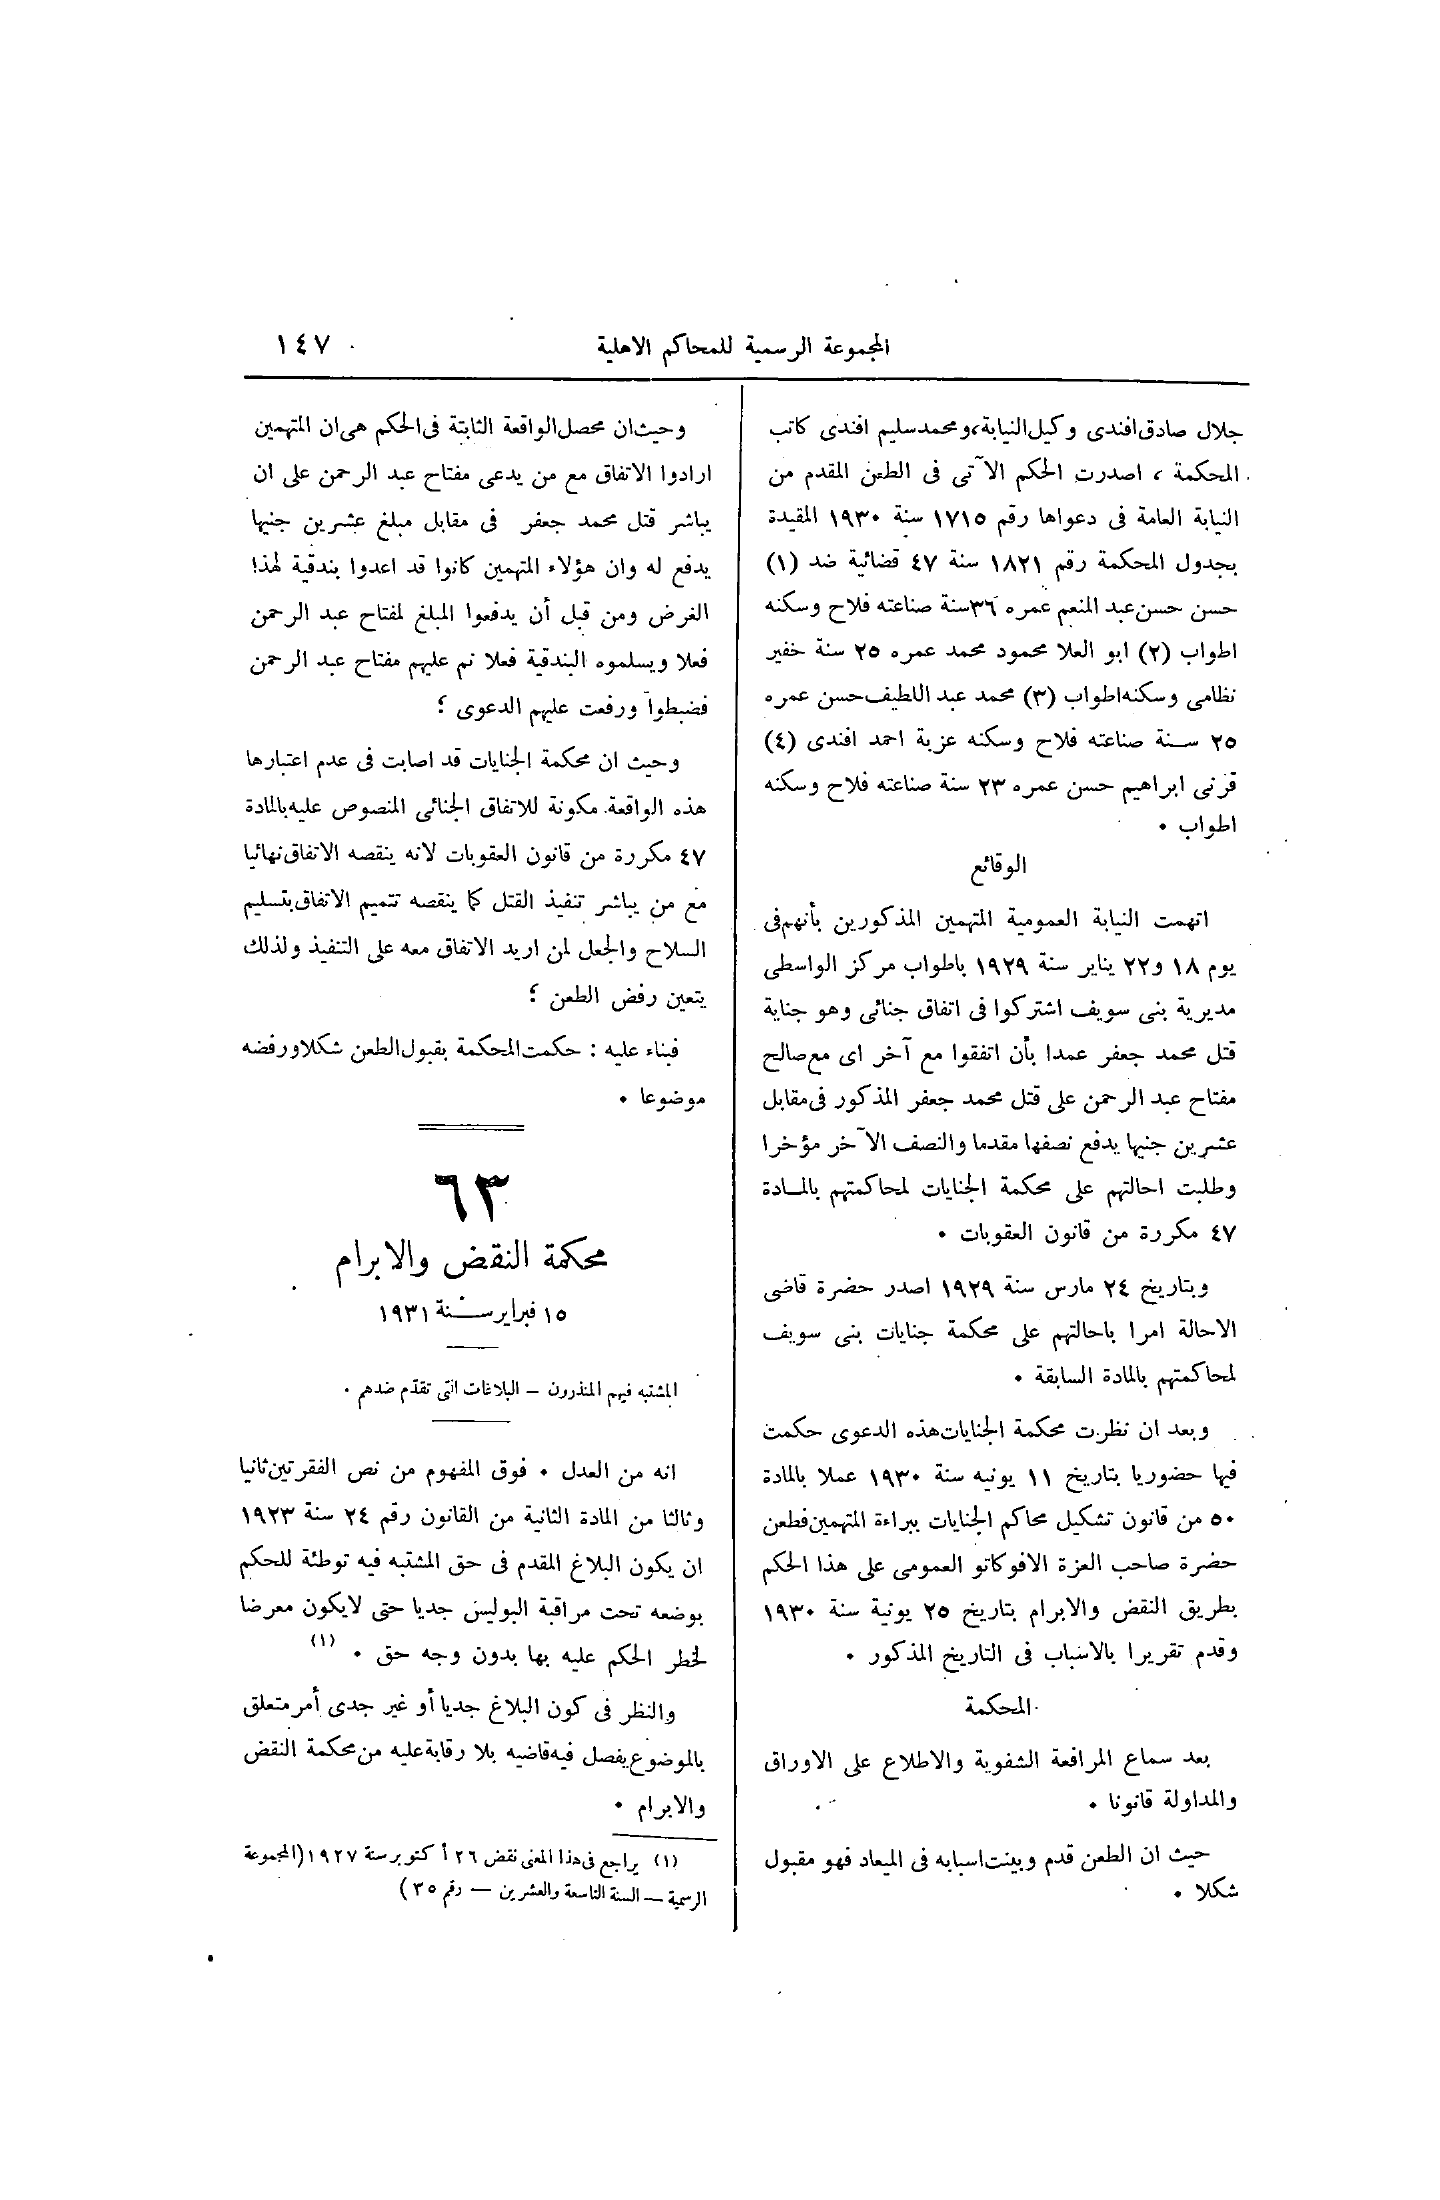 المجموعة الرسمية للمحاكم الاهلية ١٤٧
جلال صادق افندى وكيل النيابة، ومحمد سليم افندى كاتب
المحكمة ، اصدرت الحكم الآتى فى الطعن المقدم من
النيابة العامة فى دعواها رقم ١٧١٥ سنة ١٩٣٠ المقيدة
بجدول المحكمة رقم ١٨٢١ سنة ٤٧ قضائية ضد (١)
حسن حسن عبد المنعم عمره ٣٦ سنة صناعته فلاح وسكنه
اطواب (٢) ابو العلا محمود محمد عمره ٢٥ سنة خفير
نظامى وسكنه اطواب (٣) محمد عبد اللطيف حسن عمره
٢٥ سنة صناعته فلاح وسكنه عزبة احمد افندى (٤)
قرنى ابراهيم حسن عمره ٢٣ سنة صناعته فلاح وسكنه
اطواب .
الوقائع
اتهمت النيابة العمومية المتهمين المذكورين بأنهم فى
يوم ١٨ و٢٢ يناير سنة ١٩٢٩ باطواب مركز الواسطى
مديرية بنى سويف اشتركوا فى اتفاق جنائى وهو جناية
قتل محمد جعفر عمدا بأن اتفقوا مع آخر اى مع صالح
مفتاح عبد الرحمن على قتل محمد جعفر المذكور فى مقابل
عشرين جنيها يدفع نصفها مقدما والنصف الآخر مؤخرا
وطلبت احالتهم على محكمة الجنايات لمحاكمتهم بالمادة
٤٧ مكررة من قانون العقوبات .
وبتاريخ ٢٤ مارس سنة ١٩٢٩ اصدر حضرة قاضى
الاحالة امرا باحالتهم على محكمة جنايات بنى سويف
لمحاكمتهم بالمادة السابقة .
وبعد ان نظرت محكمة الجنايات هذه الدعوى حكمت
فيها حضوريا بتاريخ ١١ يونيه سنة ١٩٣٠ عملا بالمادة
٥٠ من قانون تشكيل محاكم الجنايات ببراءة المتهمين فطعن
حضرة صاحب العزة الافوكاتو العمومى على هذا الحكم
بطريق النقض والابرام بتاريخ ٢٥ يونية سنة ١٩٣٠
وقدم تقريرا بالاسباب فى التاريخ المذكور .
المحكمة
بعد سماع المرافعة الشفوية والاطلاع على الاوراق
والمداولة قانونا .
حيث ان الطعن قدم وبينت اسبابه فى الميعاد فهو مقبول
شكلا .
وحيث ان محصل الواقعة الثابتة فى الحكم هى ان المتهمين
ارادوا الاتفاق مع من يدعى مفتاح عبد الرحمن على ان
يباشر قتل محمد جعفر فى مقابل مبلغ عشرين جنيها
يدفع له وان هؤلاء المتهمين كانوا قد اعدوا بندقية لهذا
الغرض ومن قبل أن يدفعوا المبلغ لمفتاح عبد الرحمن
فعلا ويسلموه البندقية فعلا نم عليهم مفتاح عبد الرحمن
فضبطوا ورفعت عليهم الدعوى ؛
وحيث ان محكمة الجنايات قد اصابت فى عدم اعتبارها
هذه الواقعة مكونة للاتفاق الجنائى المنصوص عليه بالمادة
٤٧ مكررة من قانون العقوبات لانه ينقصه الاتفاق نهائيا
مع من يباشر تنفيذ القتل كما ينقصه تتميم الاتفاق بتسليم
السلاح والجعل لمن اريد الاتفاق معه على التنفيذ ولذلك
يتعين رفض الطعن ؛
فبناء عليه : حكمت المحكمة بقبول الطعن شكلا ورفضه
موضوعا .
٦٣
محكمة النقض والابرام
١٥ فبراير سنة ١٩٣١
المشتبه فيهم المنذرون – البلاغات التى تقدّم ضدهم .
انه من العدل . فوق المفهوم من نص الفقرتين ثانيا
وثالثا من المادة الثانية من القانون رقم ٢٤ سنة ١٩٢٣
ان يكون البلاغ المقدم فى حق المشتبه فيه توطئة للحكم
بوضعه تحت مراقبة البوليس جديا حتى لايكون معرضا
لخطر الحكم عليه بها بدون وجه حق . (١)
والنظر فى كون البلاغ جديا أو غير جدى أمر متعلق
بالموضوع يفصل فيه قاضيه بلا رقابة عليه من محكمة النقض
والابرام .
(١) يراجع فى هذا المعنى نقض ٢٦ أكتوبر سنة ١٩٢٧ (المجموعة
الرسمية – السنة التاسعة والعشرين – رقم ٣٥)